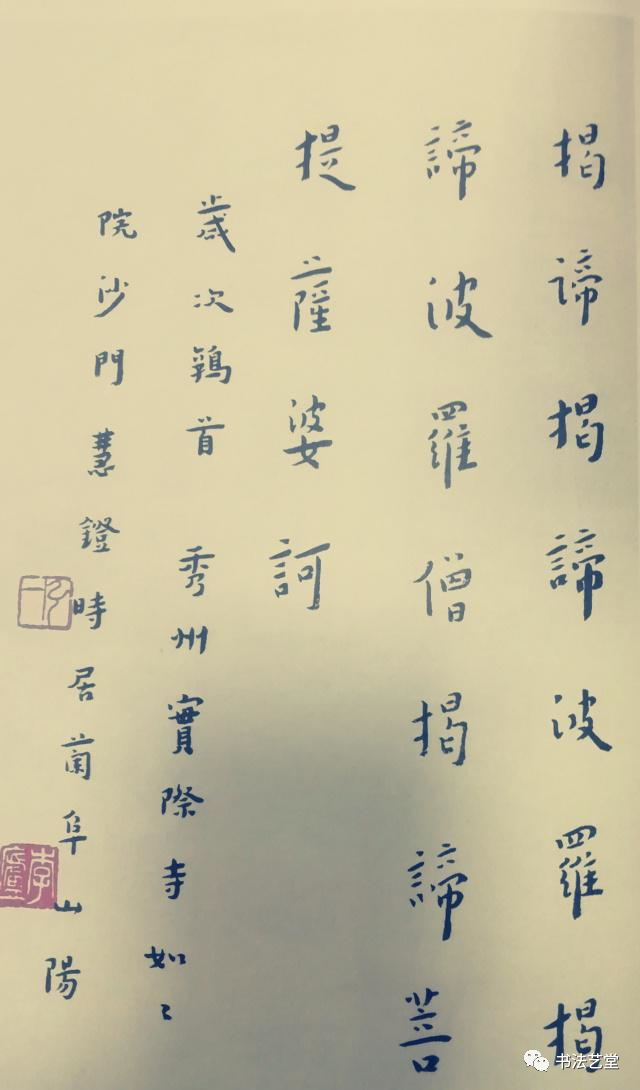 揭諦揭諦波羅揭
諦波羅僧揭諦菩
提薩婆訶
歲次鶉首 秀州實際寺如〻
院沙門慧鐙時居蘭阜山陽
弘一
李廬
书法艺堂